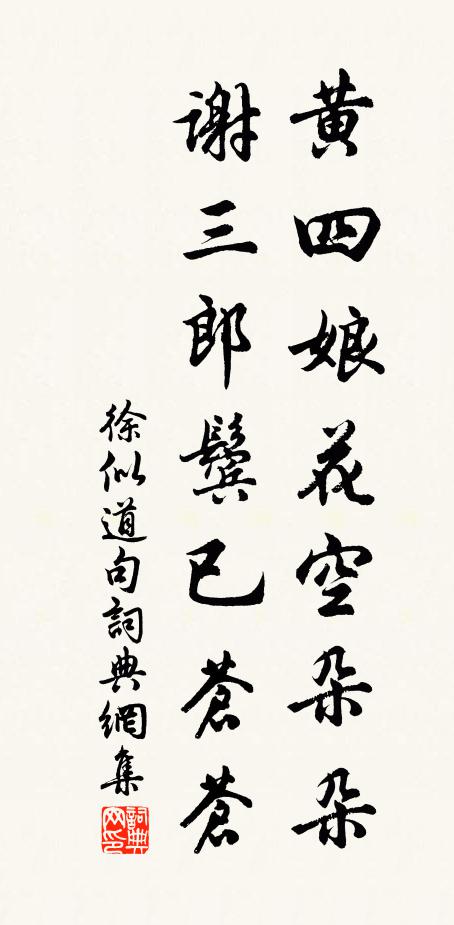 黄四娘花空朵朵
謝三郎鬓已蒼蒼
徐似道句詞典網集
詞典网印